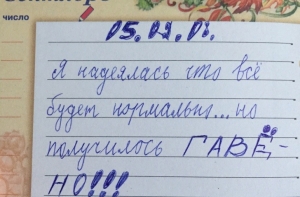 число
05.01.01.
Я надеялась что всё
будет нормально... но
получилось ГАВЁ-
НО!!!